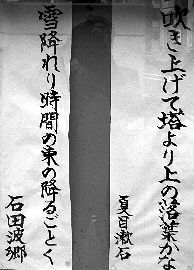 吹き上げて塔より上の落葉かな
夏目漱石
雪降れり時間の束の降るごとく
石田波郷